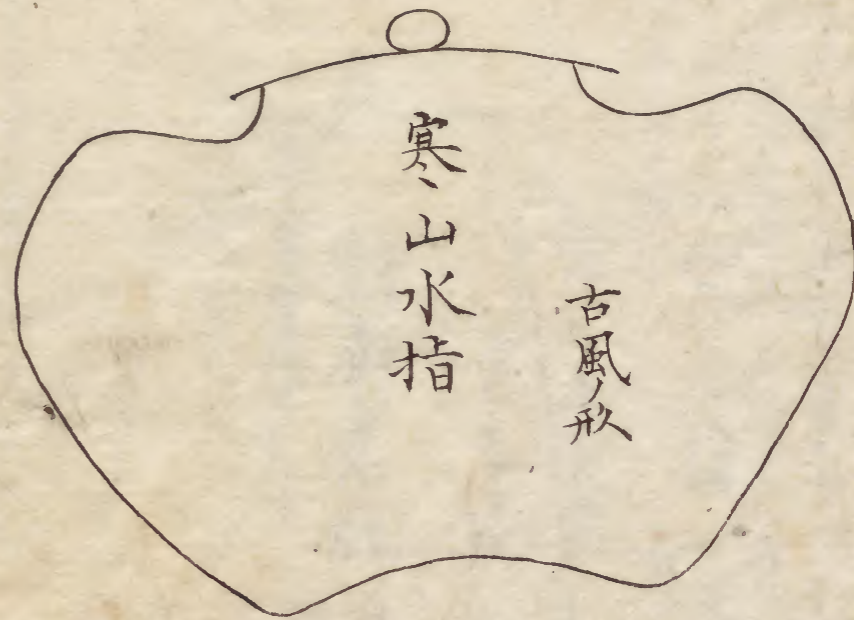 古風ノ形
寒山水指